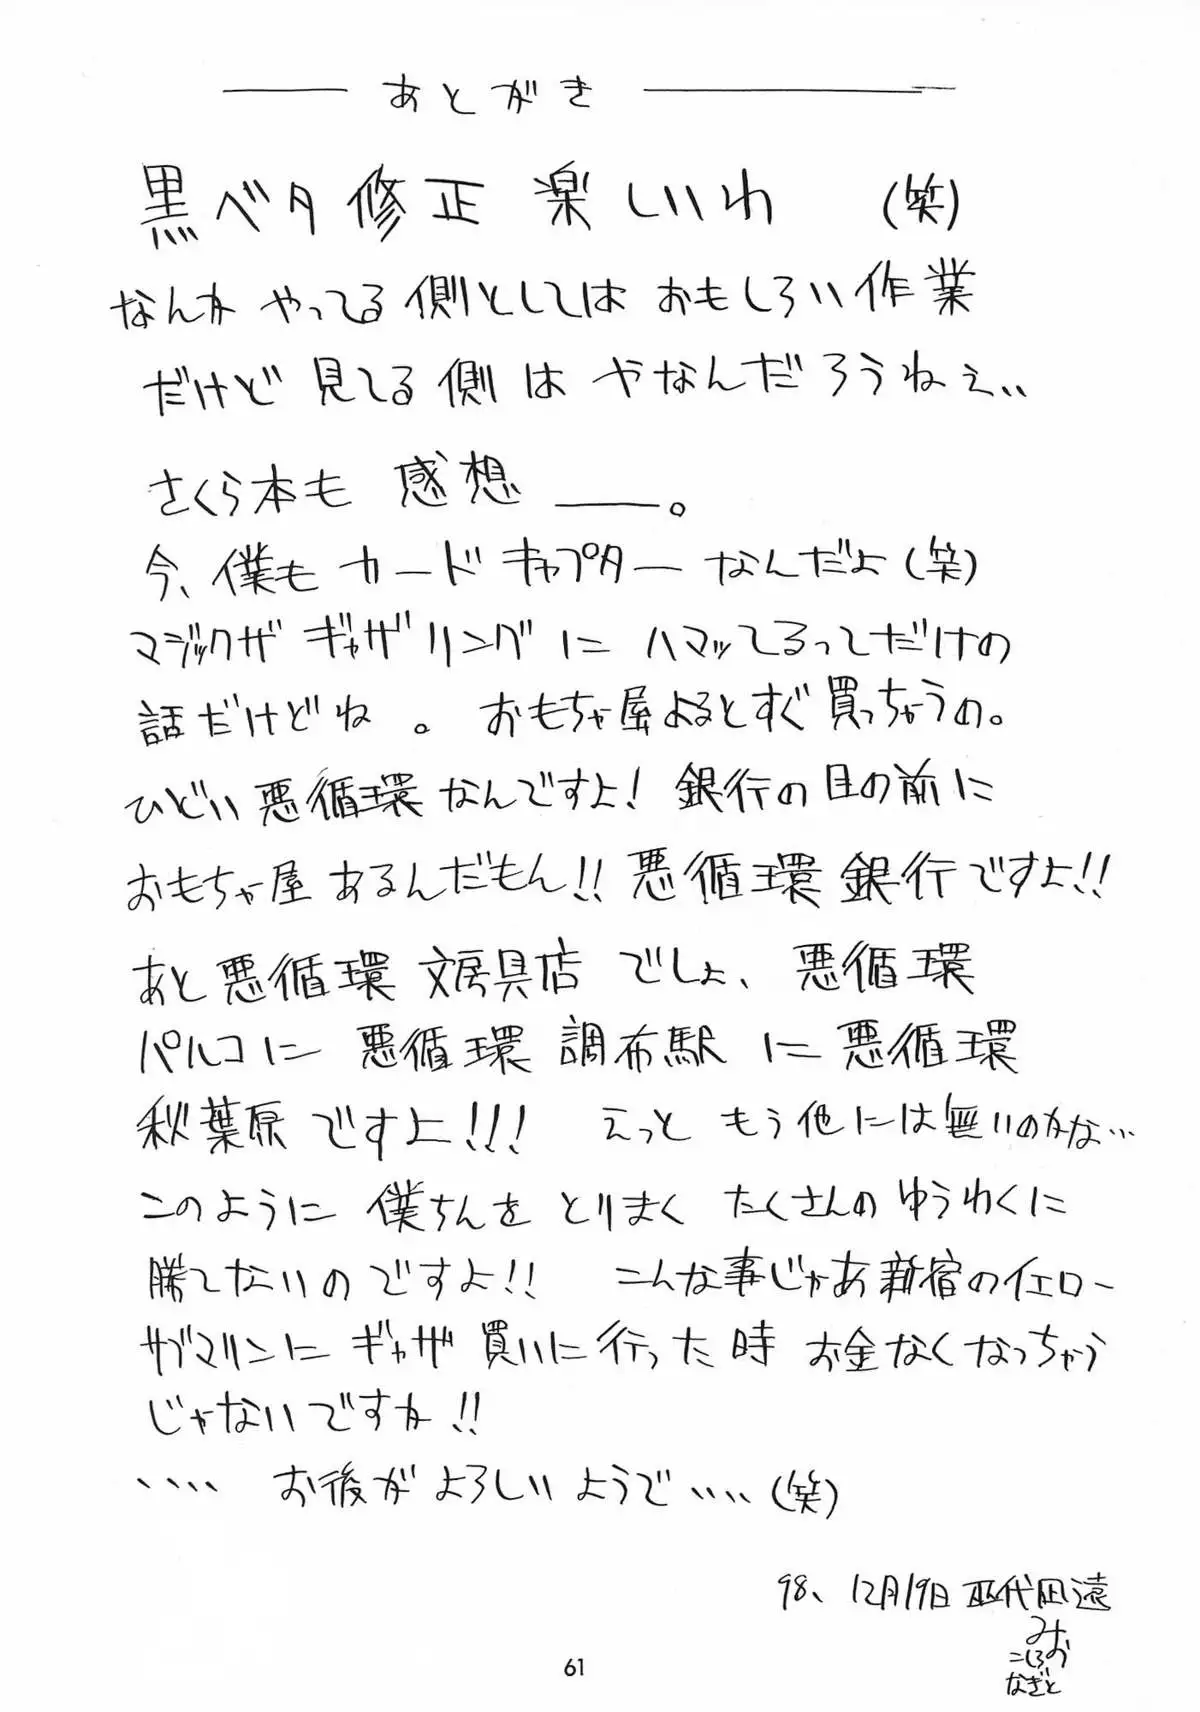 あとがき
黒ベタ修正 楽しいわ (笑)
なんか やってる 側としては おもしろい 作業
だけど 見てる 側 は やなんだろうねぇ、、
さくら本も 感想 ――。
今、僕も カード キャプター なんだよ (笑)
マジックザ ギャザリング に ハマッてるってだけの
話だけどね 。 おもちゃ屋よるとすぐ 買っちゃうの。
ひどい 悪循環 なんですよ! 銀行の目の前に
おもちゃ屋 あるんだもん!! 悪循環 銀行ですよ!!
あと 悪循環 文房具店 でしょ、 悪循環
パルコに 悪循環 調布駅 に 悪循環
秋葉原 ですよ!!! えっと もう 他には無いのかな…
このように 僕ちんを とりまく たくさんの ゆうわくに
勝てないのですよ!! こんな事じゃあ 新宿のイエロー
サブマリンに ギャザ 買いに 行った 時 お金なくなっちゃう
じゃないですか!!
、、、、 お後が よろしい ようで 、、、、 (笑)
98、12月19日 巫代凪遠
みお
こしろ
なぎと
61